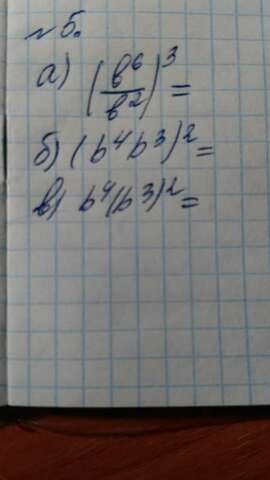 № 5.
а) (b⁶/b²)³ =
б) (b⁴b³)² =
в) b⁴(b³)² =